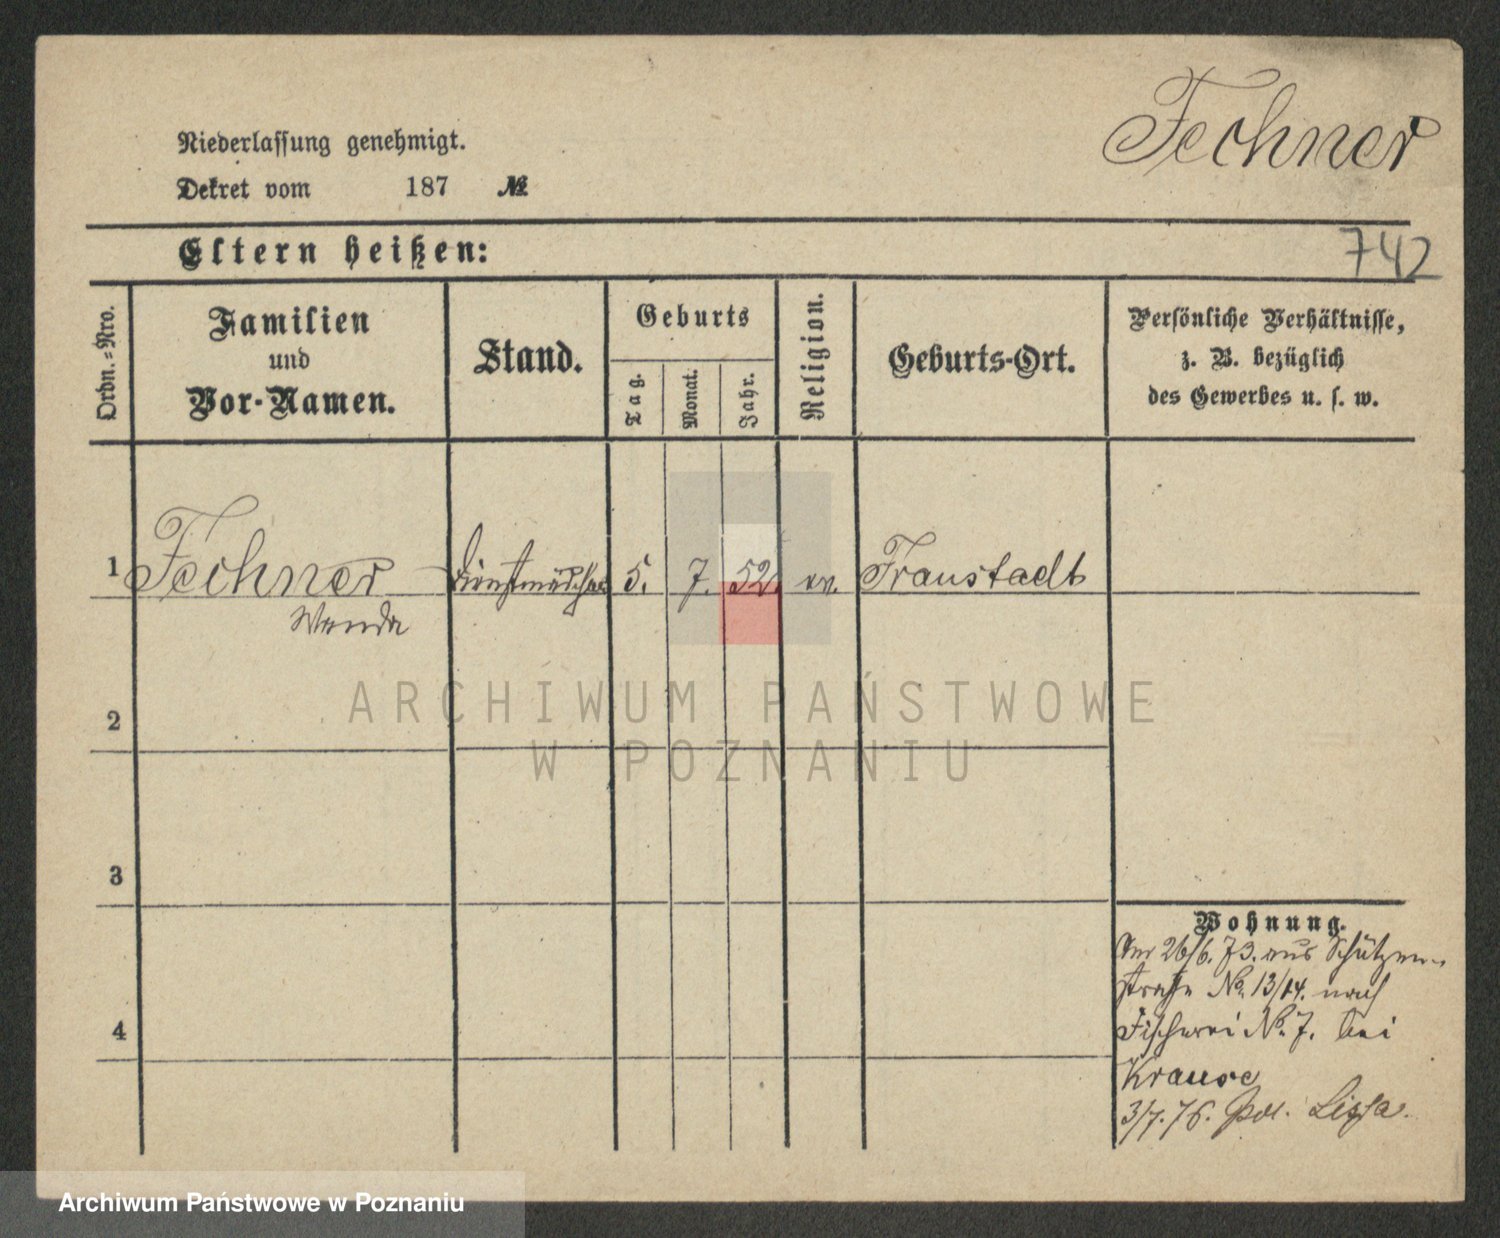 Fechner
Niederlassung genehmigt.
Dekret vom 187 №
Eltern heißen:
742
Ordn.=Nro.
Familien
und
Vor-Namen.
Stand.
Geburts
Tag.
Monat.
Jahr.
Religion.
Geburts-Ort.
Persönliche Verhältnisse,
z. B. bezüglich
des Gewerbes u. s. w.
1 Fechner Dienstmädchen 5. 7. 52. ev. Fraustadt
Wanda
ARCHIWUM PAŃSTWOWE
W POZNANIU
2
3
4
Wohnung.
26/6. 73. aus Schützen-
straße No. 13/14. nach
Fischerei No. 7. bei
Krause
3/7. 76. Lissa.
Archiwum Państwowe w Poznaniu